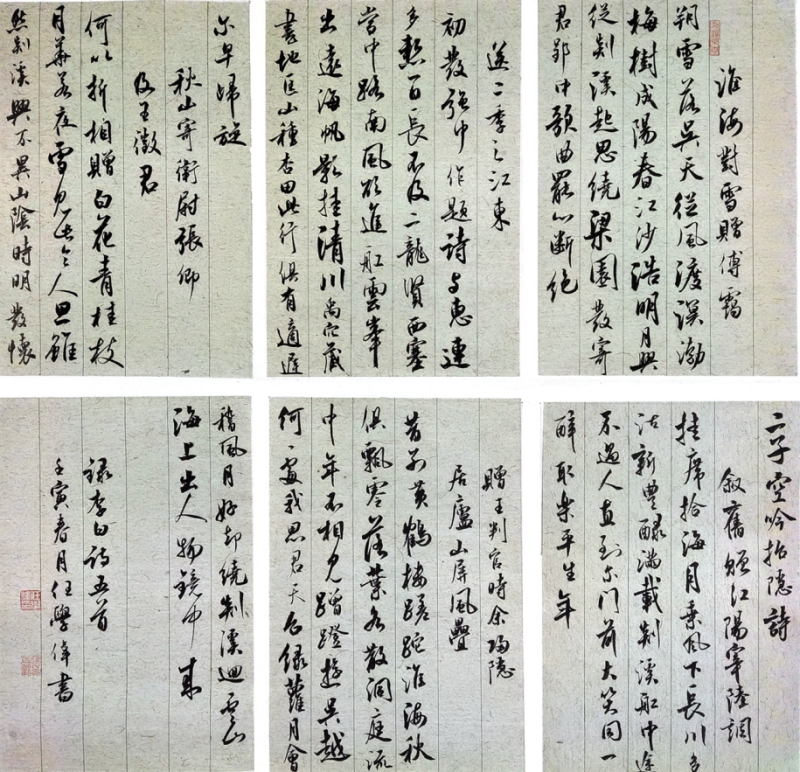 淮海對雪贈傅靄
朔雪落吳天從風渡溟渤
梅樹成陽春江沙浩明月興
從剡溪起思繞梁園發寄
君郢中歌曲罷心斷絕
送二季之江東
初發強中作題詩与惠連
多慙一日長不及二龍賢西塞
當中路南風欲進船雲峯
出遠海帆影挂清川禹穴藏
書地匡山種杏田此行俱有適遲
尔早歸旋
秋山寄衛尉張卿
及王徵君
何以折相贈白花青桂枝
月華若夜雪見此令人思雖
然剡溪興不異山陰時明發懷
二子空吟招隐詩
敘舊贈江陽宰陸調
挂席拾海月乘風下長川多
沽新豐醁滿載剡溪船中途
不遇人直到尔門前大笑同一
醉取樂平生年
贈王判官時余歸隐
居廬山屏風疊
昔別黃鶴樓蹉跎淮海秋
俱飄零落葉各散洞庭流
中年不相見蹭蹬遊吳越
何處我思君天台綠蘿月會
稽風月好却繞剡溪迴雲山
海上出人物鏡中来
録李白詩五首
壬寅春月任學偉書